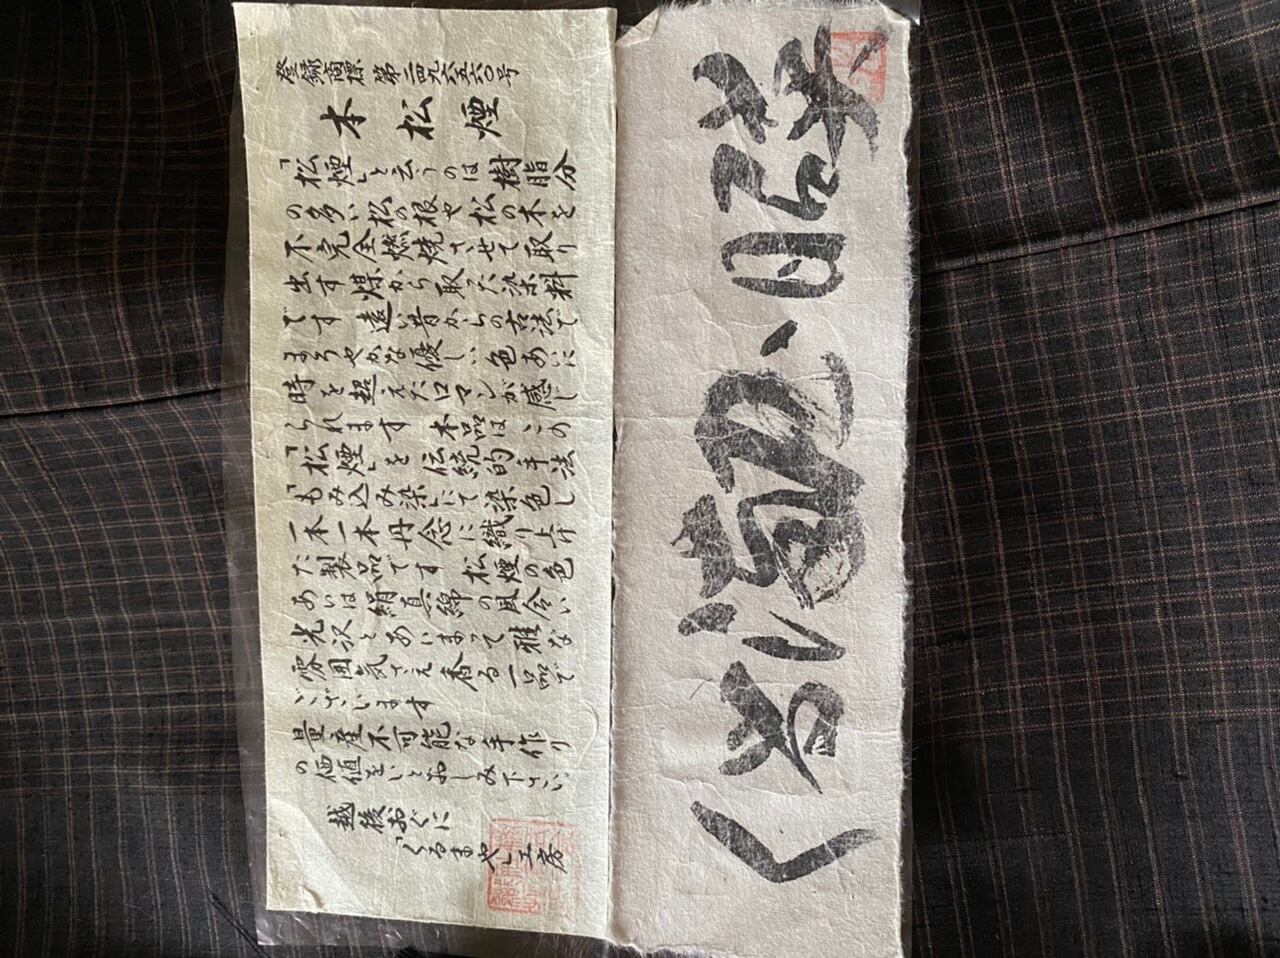 登録商標 第二四九六五六〇号
本松煙
「松煙」と云うのは樹脂分
の多い松の根や松の木を
不完全燃焼させて取り
出す煤から取った染料
です 遠い昔からの古法で
まろやかな優しい色あいに
時を超えたロマンが感じ
られます 本品は この
「松煙」を 伝統的手法
「もみ込み染」にて染色し
一本一本丹念に織り上げ
た製品です 松煙の色
あいは絹真綿の風合い
光沢とあいまって雅な
雰囲気さえ香る一品で
ございます
量産不可能な手作り
の価値をいとおしみ下さい
越後おぐに
「くるまや」工房